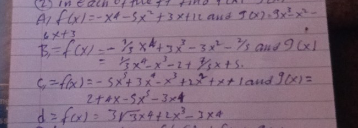 (2) In each of the
A, f(x) = -x4 - 5x² + 3x + 12 and g(x) = 9x² x² -
4x + 3
B, = f(x) = -⅓x4 + 3x³ - 3x² - ⅔ and g(x)
= ⅓x4 - x³ - 2 + ⅔x + 5.
C, = f(x) = -5x³ + 3x4 - x³ + 2x² + x + 1 and g(x) =
2 + 4x - 5x³ - 3x4
d = f(x) = 3√3x4 + 2x³ - 3x4